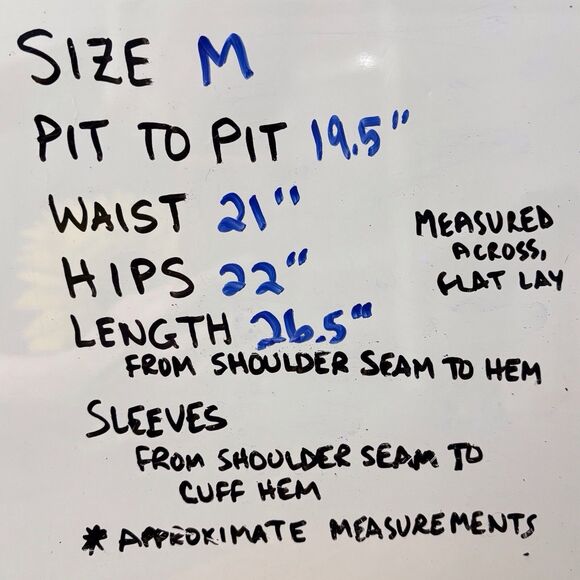 SIZE M
PIT TO PIT 19.5"
WAIST 21"
HIPS 22"
MEASURED
ACROSS,
FLAT LAY
LENGTH 26.5"
FROM SHOULDER SEAM TO HEM
SLEEVES
FROM SHOULDER SEAM TO
CUFF HEM
* APPROXIMATE MEASUREMENTS